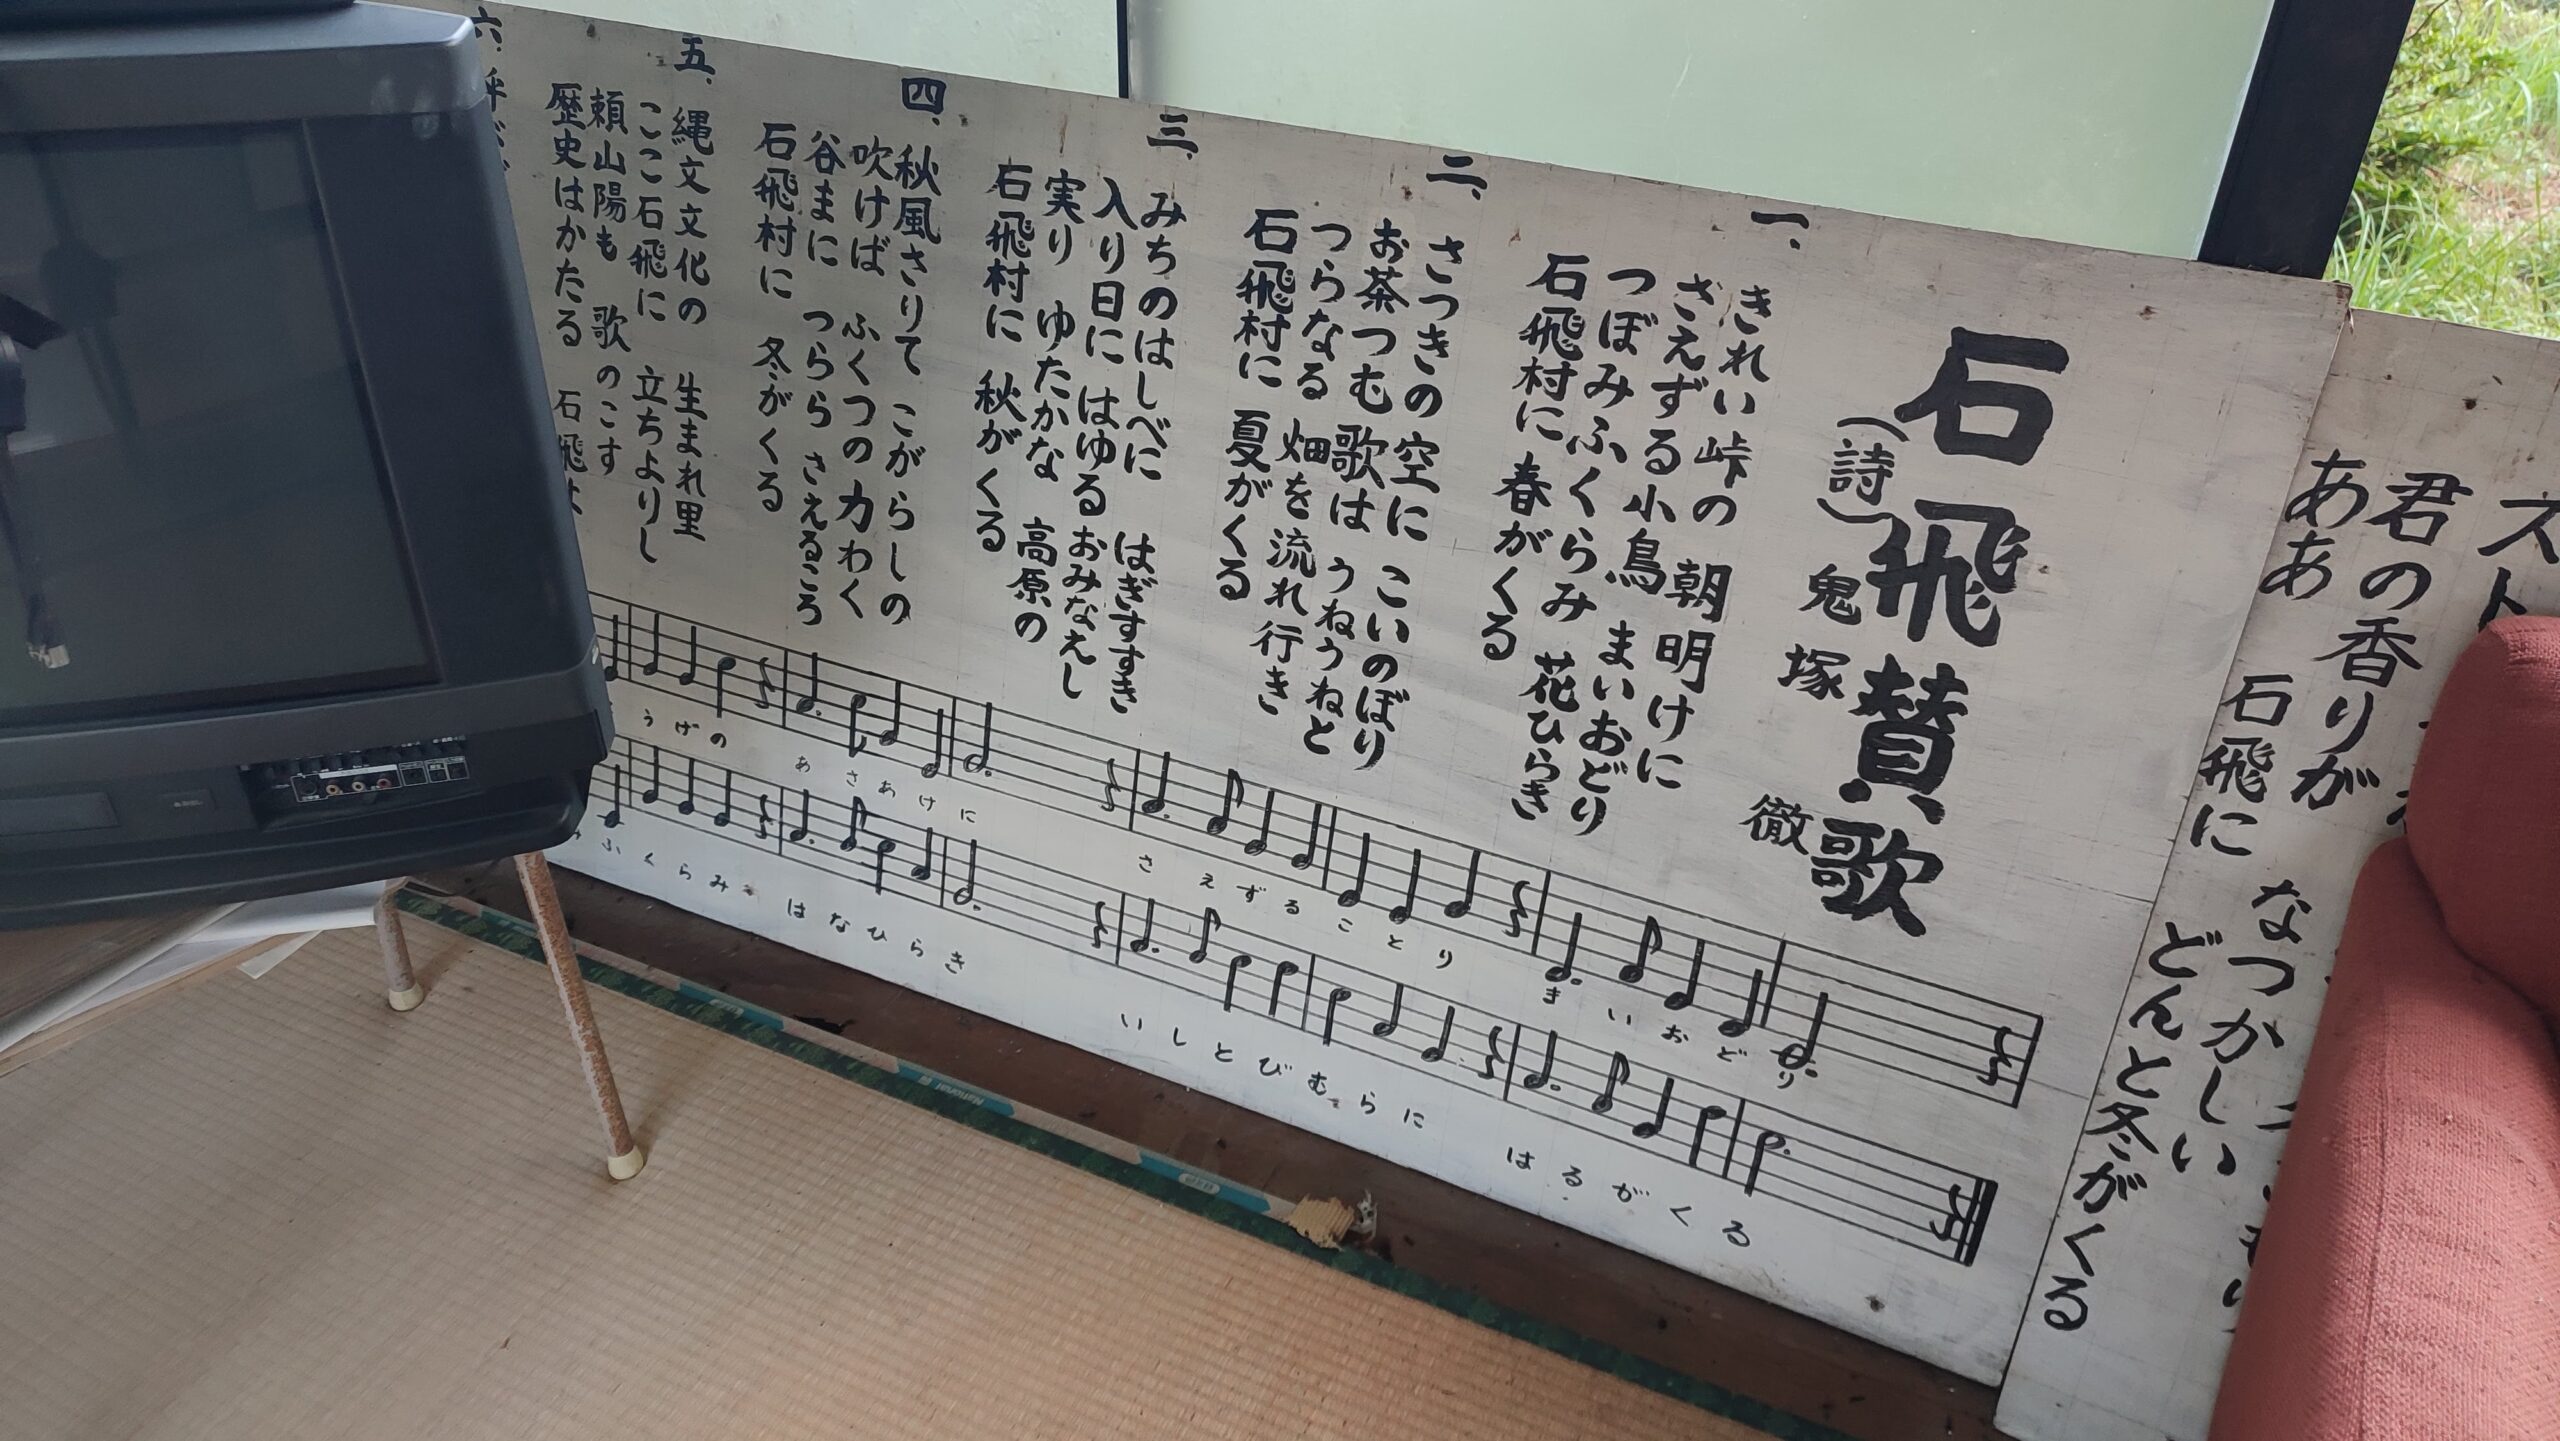 石飛賛歌
(詩) 鬼塚 徹
一、
きれい峠の 朝明けに
さえずる小鳥 まいおどり
つぼみふくらみ 花ひらき
石飛村に 春がくる
二、
さつきの空に こいのぼり
お茶つむ歌は うねうねと
つらなる 畑を 流れ行き
石飛村に 夏がくる
三、
みちのはしべに はぎすすき
入り日に はゆる おみなえし
実り ゆたかな 高原の
石飛村に 秋がくる
四、
秋風さりて こがらしの
吹けば ふくつの 力わく
谷まに つらら さえるころ
石飛村に 冬がくる
五、
縄文文化の 生まれ里
ここ石飛に 立ちよりし
頼山陽も 歌のこす
歴史はかたる 石飛は
六、
うげの あさあけに さえずることり まいおどり
ふくらみ はなひらき いしとびむらに はるがくる
君の香りが
ああ 石飛に なつかしい
どんと冬がくる
National